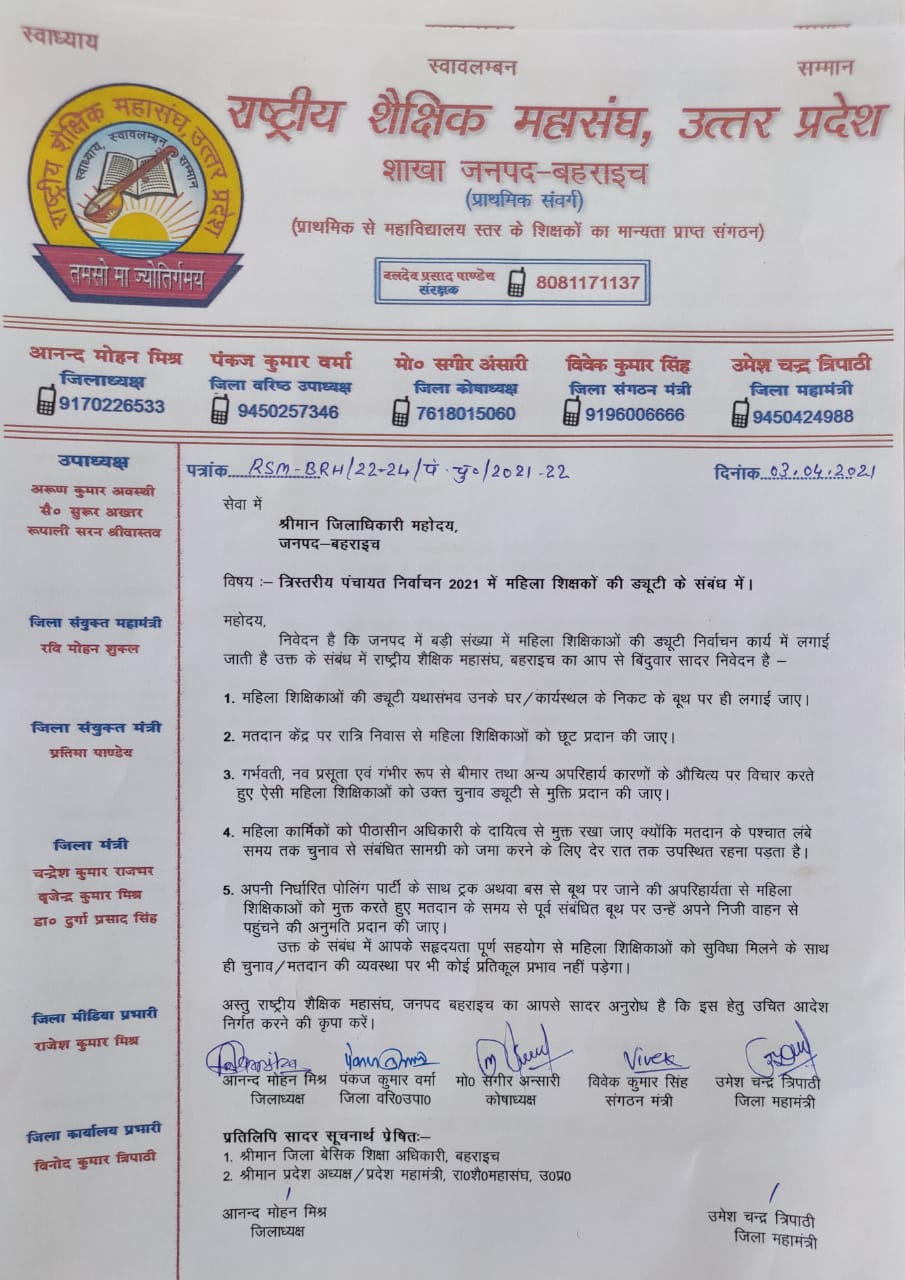 स्वाध्याय
स्वावलम्बन
सम्मान
राष्ट्रीय शैक्षिक महासंघ, उत्तर प्रदेश
राष्ट्रीय शैक्षिक महासंघ, उत्तर प्रदेश
स्वाध्याय, स्वावलम्बन, सम्मान
तमसो मा ज्योतिर्गमय
शाखा जनपद-बहराइच
(प्राथमिक संवर्ग)
(प्राथमिक से महाविद्यालय स्तर के शिक्षकों का मान्यता प्राप्त संगठन)
बलदेव प्रसाद पाण्डेय
संरक्षक
8081171137
आनन्द मोहन मिश्र
जिलाध्यक्ष
9170226533
पंकज कुमार वर्मा
जिला वरिष्ठ उपाध्यक्ष
9450257346
मो० सगीर अंसारी
जिला कोषाध्यक्ष
7618015060
विवेक कुमार सिंह
जिला संगठन मंत्री
9196006666
उमेश चन्द्र त्रिपाठी
जिला महामंत्री
9450424988
उपाध्यक्ष
अरूण कुमार अवस्थी
सै० सुरूर अख्तर
रूपाली सरन श्रीवास्तव
जिला संयुक्त महामंत्री
रवि मोहन शुक्ल
जिला संयुक्त मंत्री
प्रतिमा पाण्डेय
जिला मंत्री
चन्द्रेश कुमार राजभर
बृजेन्द्र कुमार मिश्र
डा० दुर्गा प्रसाद सिंह
जिला मीडिया प्रभारी
राजेश कुमार मिश्र
जिला कार्यालय प्रभारी
विनोद कुमार त्रिपाठी
पत्रांक RSM-BRH/22-24/पं.चु०/2021-22
दिनांक 03.04.2021
सेवा में
श्रीमान जिलाधिकारी महोदय,
जनपद-बहराइच
विषय :- त्रिस्तरीय पंचायत निर्वाचन 2021 में महिला शिक्षकों की ड्यूटी के संबंध में।
महोदय,
निवेदन है कि जनपद में बड़ी संख्या में महिला शिक्षिकाओं की ड्यूटी निर्वाचन कार्य में लगाई
जाती है उक्त के संबंध में राष्ट्रीय शैक्षिक महासंघ, बहराइच का आप से बिंदुवार सादर निवेदन है –
1. महिला शिक्षिकाओं की ड्यूटी यथासंभव उनके घर/कार्यस्थल के निकट के बूथ पर ही लगाई जाए।
2. मतदान केंद्र पर रात्रि निवास से महिला शिक्षिकाओं को छूट प्रदान की जाए।
3. गर्भवती, नव प्रसूता एवं गंभीर रूप से बीमार तथा अन्य अपरिहार्य कारणों के औचित्य पर विचार करते
हुए ऐसी महिला शिक्षिकाओं को उक्त चुनाव ड्यूटी से मुक्ति प्रदान की जाए।
4. महिला कार्मिकों को पीठासीन अधिकारी के दायित्व से मुक्त रखा जाए क्योंकि मतदान के पश्चात लंबे
समय तक चुनाव से संबंधित सामग्री को जमा करने के लिए देर रात तक उपस्थित रहना पड़ता है।
5. अपनी निर्धारित पोलिंग पार्टी के साथ ट्रक अथवा बस से बूथ पर जाने की अपरिहार्यता से महिला
शिक्षिकाओं को मुक्त करते हुए मतदान के समय से पूर्व संबंधित बूथ पर उन्हें अपने निजी वाहन से
पहुंचने की अनुमति प्रदान की जाए।
उक्त के संबंध में आपके सहृदयता पूर्ण सहयोग से महिला शिक्षिकाओं को सुविधा मिलने के साथ
ही चुनाव/मतदान की व्यवस्था पर भी कोई प्रतिकूल प्रभाव नहीं पड़ेगा।
अस्तु राष्ट्रीय शैक्षिक महासंघ, जनपद बहराइच का आपसे सादर अनुरोध है कि इस हेतु उचित आदेश
निर्गत करने की कृपा करें।
Vivek
आनन्द मोहन मिश्र
जिलाध्यक्ष
पंकज कुमार वर्मा
जिला वरि०उपा०
मो० सगीर अन्सारी
कोषाध्यक्ष
विवेक कुमार सिंह
संगठन मंत्री
उमेश चन्द्र त्रिपाठी
जिला महामंत्री
प्रतिलिपि सादर सूचनार्थ प्रेषितः–
1. श्रीमान जिला बेसिक शिक्षा अधिकारी, बहराइच
2. श्रीमान प्रदेश अध्यक्ष/प्रदेश महामंत्री, रा०शै०महासंघ, उ०प्र०
आनन्द मोहन मिश्र
जिलाध्यक्ष
उमेश चन्द्र त्रिपाठी
जिला महामंत्री